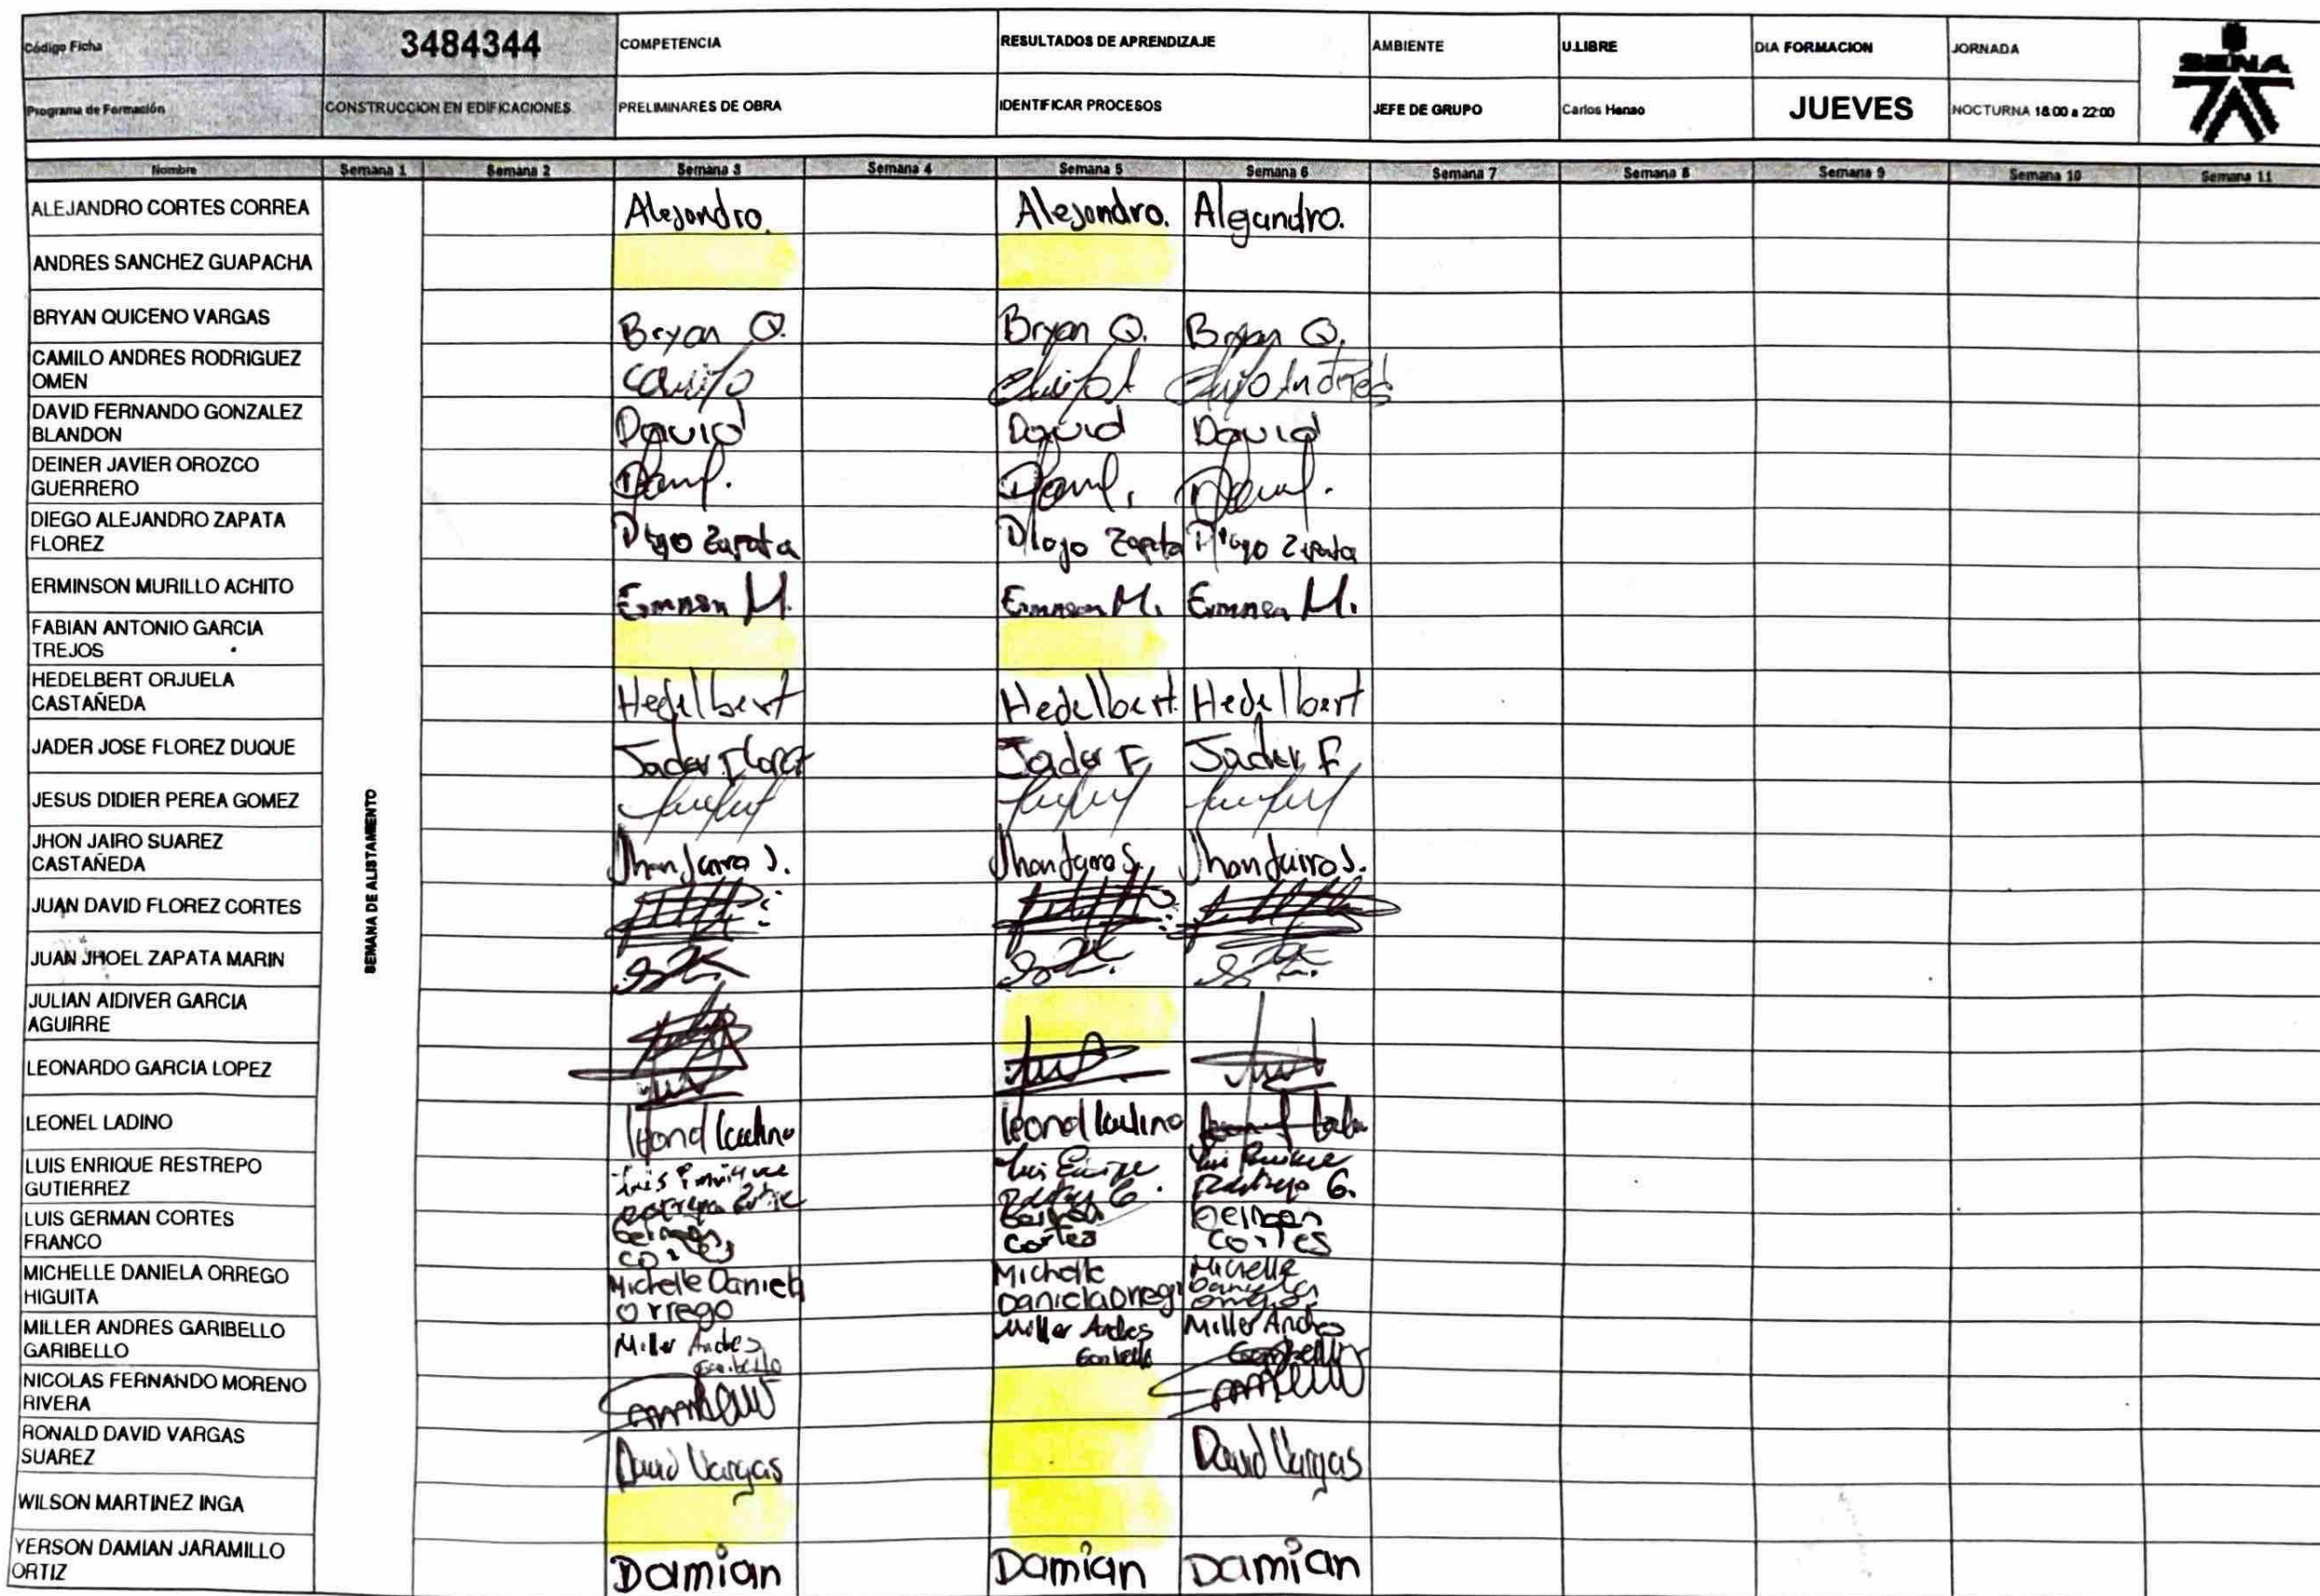 Código Ficha 3484344 COMPETENCIA RESULTADOS DE APRENDIZAJE AMBIENTE U.LIBRE DIA FORMACION JORNADA SENA
Programa de Formación CONSTRUCCION EN EDIFICACIONES PRELIMINARES DE OBRA IDENTIFICAR PROCESOS JEFE DE GRUPO Carlos Henao JUEVES NOCTURNA 18:00 a 22:00
Nombre Semana 1 Semana 2 Semana 3 Semana 4 Semana 5 Semana 6 Semana 7 Semana 8 Semana 9 Semana 10 Semana 11
SEMANA DE ALISTAMIENTO
ALEJANDRO CORTES CORREA Alejandro. Alejandro. Alejandro.
ANDRES SANCHEZ GUAPACHA
BRYAN QUICENO VARGAS Bryan Q. Bryan Q. Bryan Q.
CAMILO ANDRES RODRIGUEZ
OMEN Camilo
DAVID FERNANDO GONZALEZ
BLANDON David David David
DEINER JAVIER OROZCO
GUERRERO
DIEGO ALEJANDRO ZAPATA
FLOREZ Diego Zapata Diego Zapata Diego Zapata
ERMINSON MURILLO ACHITO
FABIAN ANTONIO GARCIA
TREJOS
HEDELBERT ORJUELA
CASTAÑEDA Hedelbert Hedelbert Hedelbert
JADER JOSE FLOREZ DUQUE Jader Florez Jader F Jader F
JESUS DIDIER PEREA GOMEZ
JHON JAIRO SUAREZ
CASTAÑEDA Jhon Jairo S. Jhon Jairo S. Jhon Jairo S.
JUAN DAVID FLOREZ CORTES
JUAN JHOEL ZAPATA MARIN
JULIAN AIDIVER GARCIA
AGUIRRE
LEONARDO GARCIA LOPEZ
LEONEL LADINO Leonel Ladino Leonel Ladino
LUIS ENRIQUE RESTREPO
GUTIERREZ Luis Enrique Restrepo G.
LUIS GERMAN CORTES
FRANCO German Cortes German Cortes
MICHELLE DANIELA ORREGO
HIGUITA Michelle Daniela Orrego Michelle Daniela Orrego Michelle Daniela Orrego
MILLER ANDRES GARIBELLO
GARIBELLO Miller Andres Garibello Miller Andres Garibello Miller Andres Garibello
NICOLAS FERNANDO MORENO
RIVERA
RONALD DAVID VARGAS
SUAREZ David Vargas David Vargas
WILSON MARTINEZ INGA
YERSON DAMIAN JARAMILLO
ORTIZ Damian Damian Damian